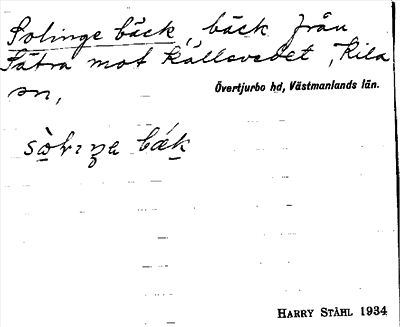 Solinge bäck, bäck från
Sätra mot Källevedet, Kila
sn,
Övertjurbo hd, Västmanlands län.
bäk
HARRY STÅHL 1934